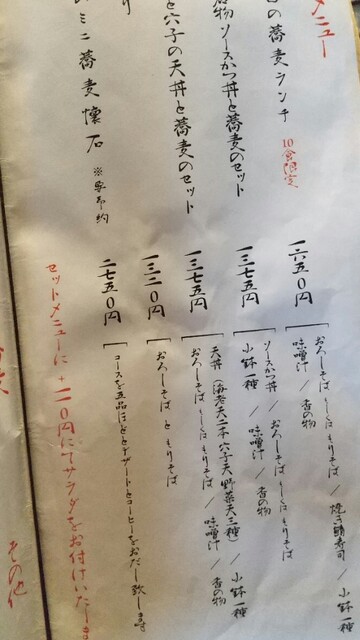 メニュー
の蕎麦ランチ 10食限定
一六五〇円
おろしそば もしくは もりそば / 焼き鯖寿司 / 小鉢一種
味噌汁 / 香の物
物ソースかつ丼と蕎麦のセット
一三七五円
ソースかつ丼 / おろしそば もしくは もりそば
小鉢一種 / 味噌汁 / 香の物
と穴子の天丼と蕎麦のセット
一三七五円
天丼(海老天二本 穴子天 野菜天三種) / 小鉢一種
おろしそば もしくは もりそば / 味噌汁 / 香の物
り
一三二〇円
おろしそば と もりそば
ミニ蕎麦懐石 ※要予約
二七五〇円
コースを五品ほどとデザートとコーヒーをお出し致します
セットメニューに +二一〇円にてサラダをお付けいたしま
その他